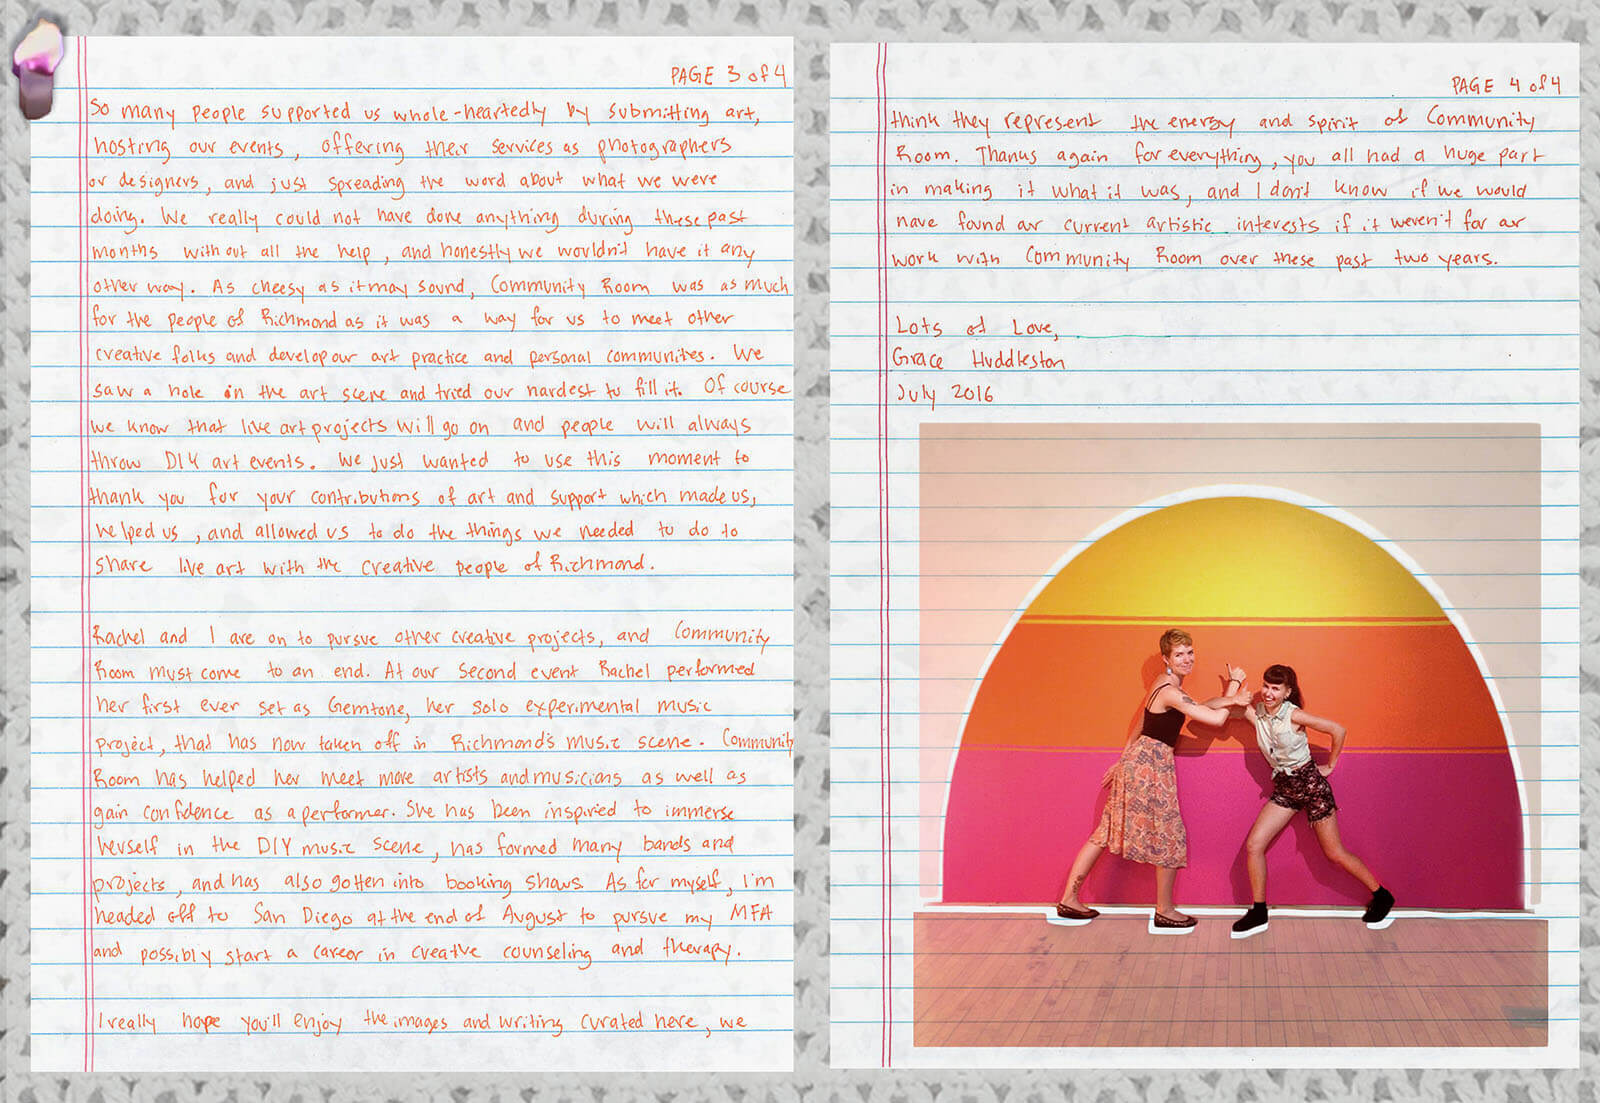 PAGE 3 of 4
So many people supported us whole-heartedly by submitting art,
hosting our events, offering their services as photographers
or designers, and just spreading the word about what we were
doing. We really could not have done anything during these past
months without all the help, and honestly we wouldn't have it any
other way. As cheesy as it may sound, Community Room was as much
for the people of Richmond as it was a way for us to meet other
creative folks and develop our art practice and personal communities. We
saw a hole in the art scene and tried our hardest to fill it. Of course
we know that live art projects will go on and people will always
throw DIY art events. We just wanted to use this moment to
thank you for your contributions of art and support which made us,
helped us, and allowed us to do the things we needed to do to
share live art with the creative people of Richmond.
Rachel and I are on to pursue other creative projects, and Community
Room must come to an end. At our second event Rachel performed
her first ever set as Gemtone, her solo experimental music
project, that has now taken off in Richmond's music scene. Community
Room has helped her meet more artists and musicians as well as
gain confidence as a performer. She has been inspired to immerse
herself in the DIY music scene, has formed many bands and
projects, and has also gotten into booking shows. As for myself, I'm
headed off to San Diego at the end of August to pursue my MFA
and possibly start a career in creative counseling and therapy.
I really hope you'll enjoy the images and writing curated here, we
PAGE 4 of 4
think they represent the energy and spirit of Community
Room. Thanks again for everything, you all had a huge part
in making it what it was, and I don't know if we would
have found our current artistic interests if it weren't for our
work with Community Room over these past two years.
Lots of Love,
Grace Huddleston
July 2016